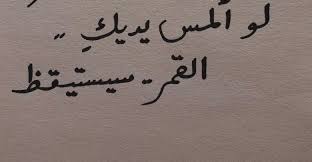 لو ألمس يديكِ ,,
القمر - سيستيقظ